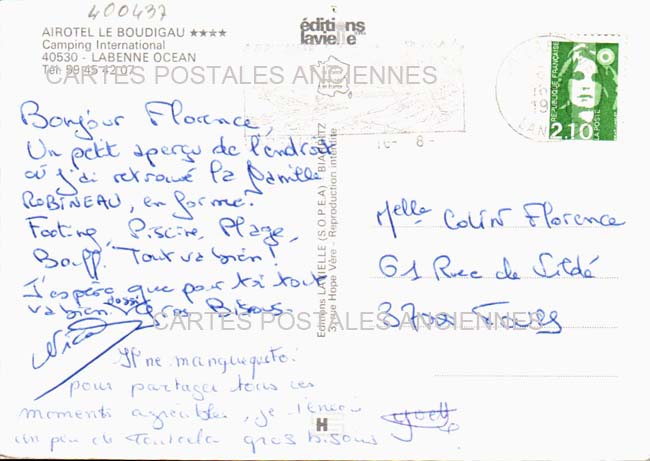 400437
AIROTEL LE BOUDIGAU ★★★★
Camping International
40530 - LABENNE OCEAN
Tél 59 45 42 07
éditions
lavielle
CARTES POSTALES ANCIENNES
Bonjour Florence,
Un petit aperçu de l'endroit
où j'ai retrouvé la famille
ROBINEAU, en forme!
Footing, Piscine, Plage,
Bouff. Tout va bien!
J'espère que pour toi tout
va bien aussi. Gros Bisous.
Nico
Il ne manque que toi
pour partager tous ces
moments agréables, je t'envoie
un peu de gros bisous
Editions LAVIELLE (S.O.P.E.A) BIARRITZ
3, rue Hope Vère - Reproduction interdite
REPUBLIQUE FRANÇAISE
LA POSTE
2,10
16- 8-
LAN
Melle COLIN Florence
61 Rue de
37000 Tours
CARTES POSTALES ANCIENNES
H